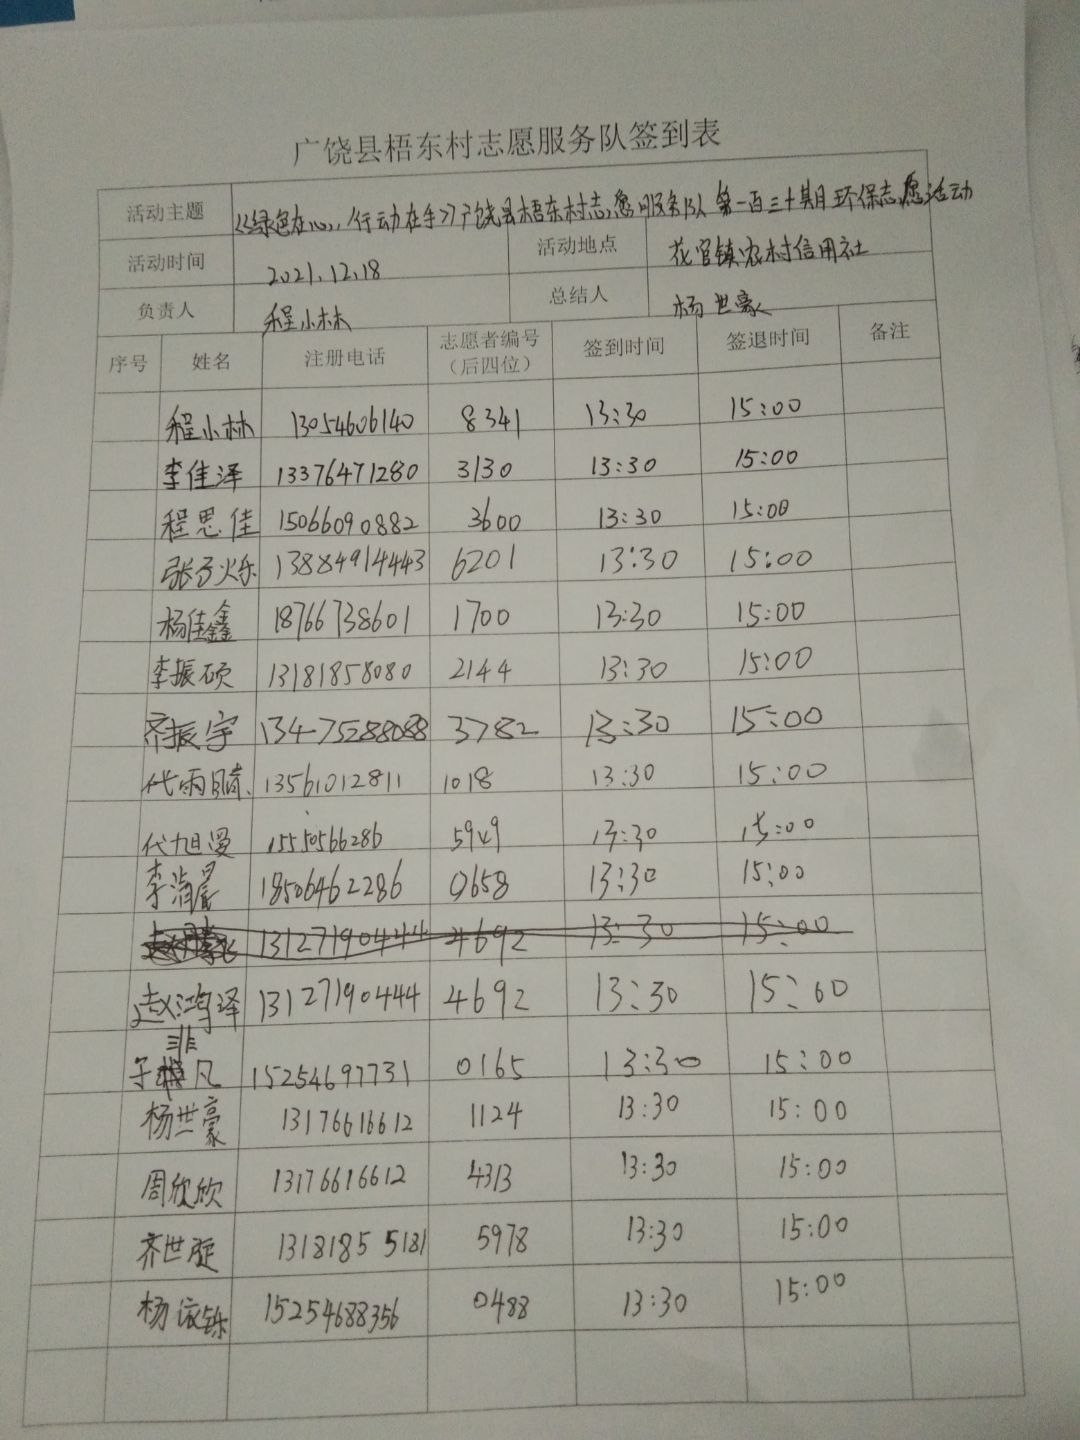 广饶县梧东村志愿服务队签到表
活动主题 《绿色在心，行动在手》广饶县梧东村志愿服务队第一百三十期月环保志愿活动
活动时间 2021.12.18 活动地点 花官镇农村信用社
负责人 程小林 总结人 杨世豪
序号 姓名 注册电话 志愿者编号（后四位） 签到时间 签退时间 备注
程小林 13054606140 8341 13:30 15:00
李佳泽 13376471280 3130 13:30 15:00
程思佳 15066090882 3600 13:30 15:00
张子烁 13884914443 6201 13:30 15:00
杨佳鑫 18766738601 1700 13:30 15:00
李振硕 13181858080 2144 13:30 15:00
齐振宇 13475288088 3782 13:30 15:00
代雨晴 13561012811 1018 13:30 15:00
代旭漫 15550566286 5949 13:30 15:00
李清晨 18506462286 0658 13:30 15:00
13127190444 4692 13:30 15:00
赵鸿泽 13127190444 4692 13:30 15:00
于非凡 15254697731 0165 13:30 15:00
杨世豪 13176616612 1124 13:30 15:00
周欣欣 13176616612 4313 13:30 15:00
齐世 13181855181 5978 13:30 15:00
杨依铄 15254688356 0488 13:30 15:00